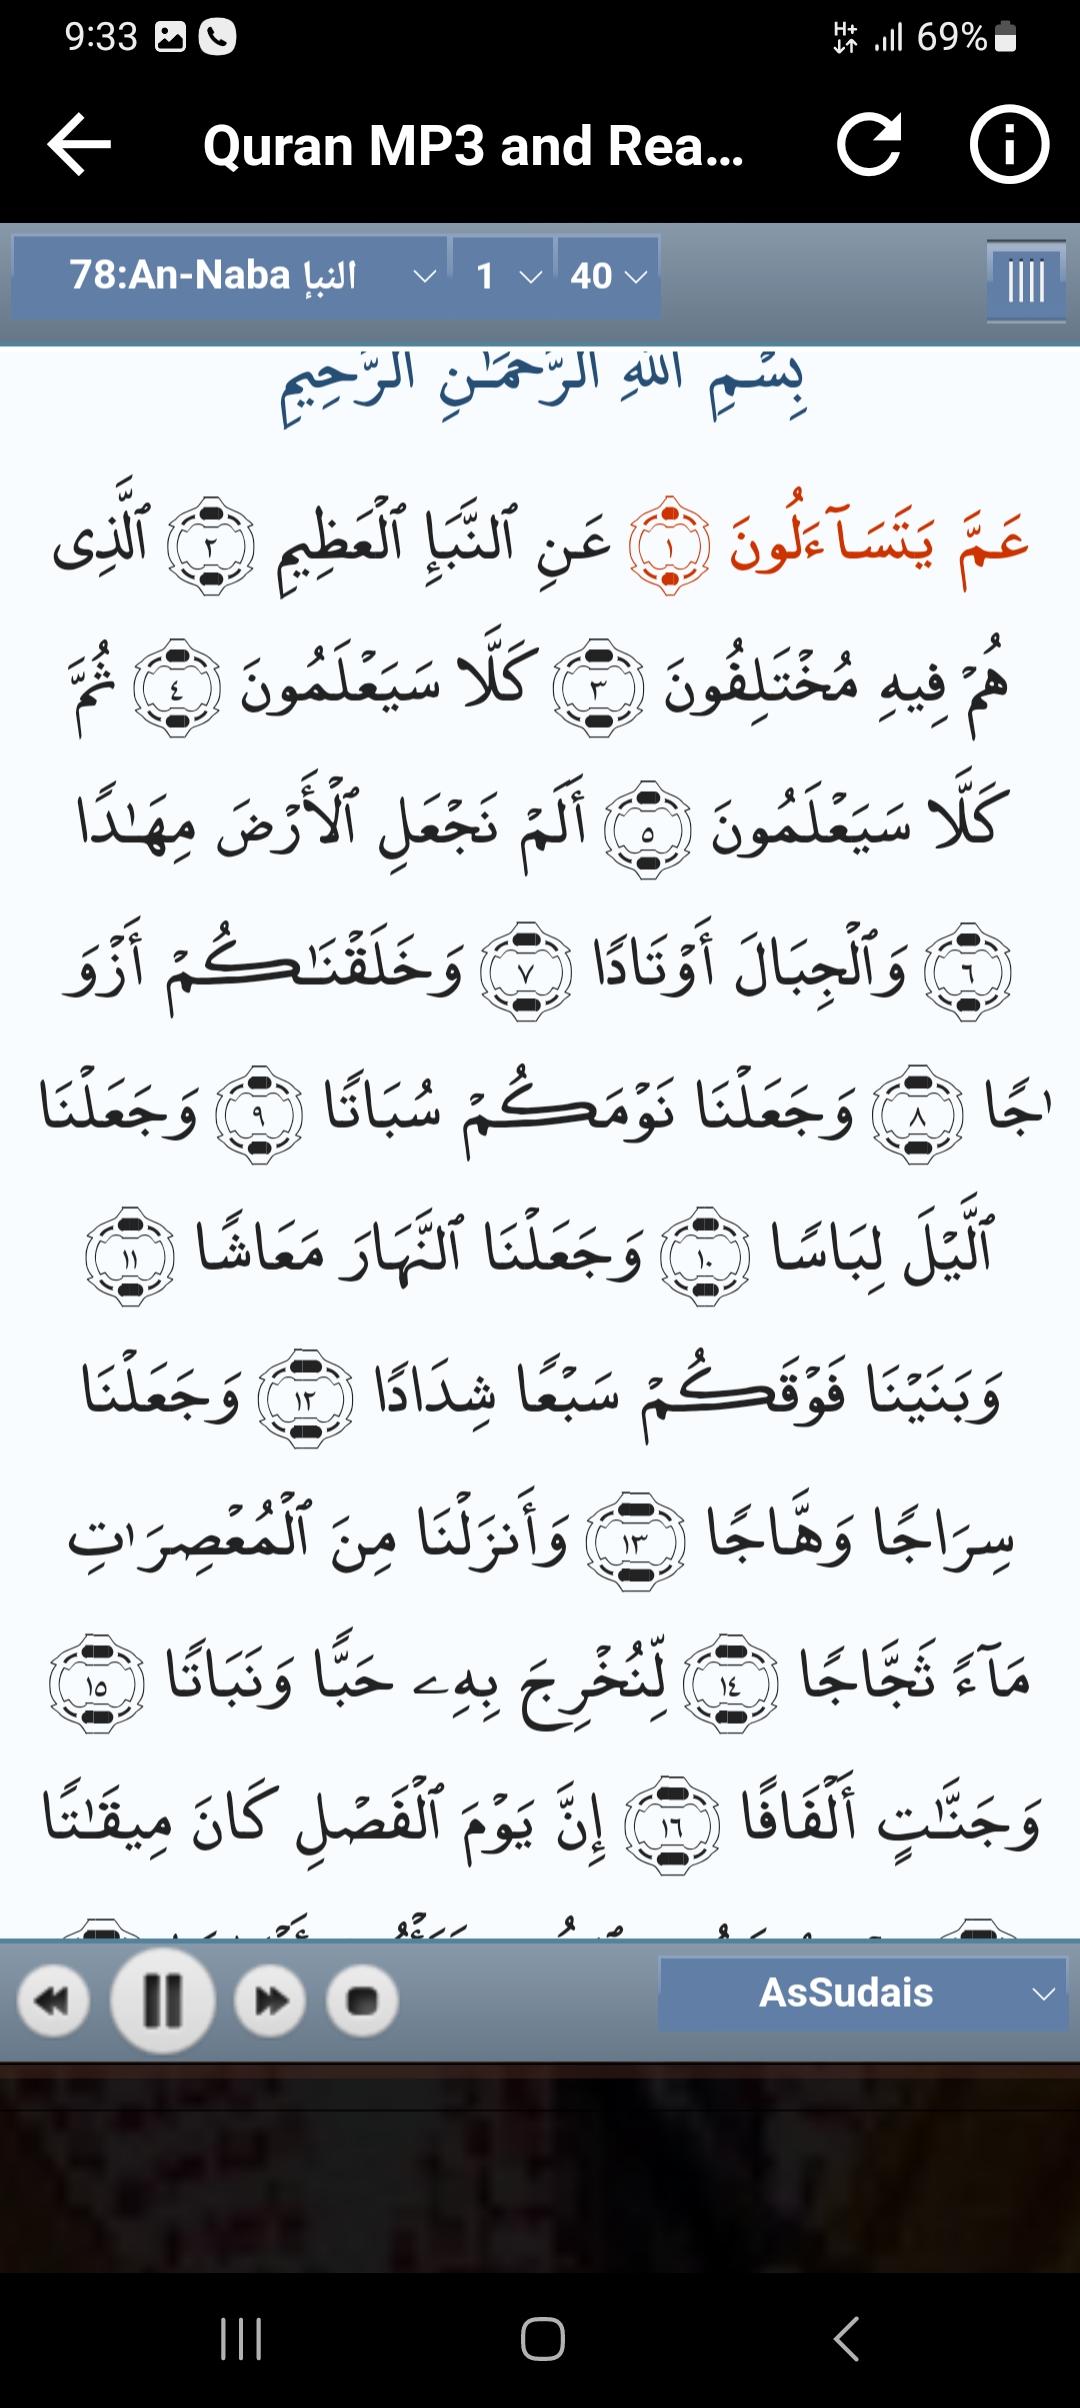 9:33
H+
69%
Quran MP3 and Rea...
78:An-Naba النبإ
1
40
بِسْمِ اللَّهِ الرَّحْمَـٰنِ الرَّحِيمِ
عَمَّ يَتَسَآءَلُونَ ١ عَنِ ٱلنَّبَإِ ٱلْعَظِيمِ ٢ ٱلَّذِى
هُمْ فِيهِ مُخْتَلِفُونَ ٣ كَلَّا سَيَعْلَمُونَ ٤ ثُمَّ
كَلَّا سَيَعْلَمُونَ ٥ أَلَمْ نَجْعَلِ ٱلْأَرْضَ مِهَـٰدًا
٦ وَٱلْجِبَالَ أَوْتَادًا ٧ وَخَلَقْنَـٰكُمْ أَزْوَ
ٰجًا ٨ وَجَعَلْنَا نَوْمَكُمْ سُبَاتًا ٩ وَجَعَلْنَا
ٱلَّيْلَ لِبَاسًا ١٠ وَجَعَلْنَا ٱلنَّهَارَ مَعَاشًا ١١
وَبَنَيْنَا فَوْقَكُمْ سَبْعًا شِدَادًا ١٢ وَجَعَلْنَا
سِرَاجًا وَهَّاجًا ١٣ وَأَنزَلْنَا مِنَ ٱلْمُعْصِرَٰتِ
مَآءً ثَجَّاجًا ١٤ لِّنُخْرِجَ بِهِۦ حَبًّا وَنَبَاتًا ١٥
وَجَنَّـٰتٍ أَلْفَافًا ١٦ إِنَّ يَوْمَ ٱلْفَصْلِ كَانَ مِيقَـٰتًا
AsSudais